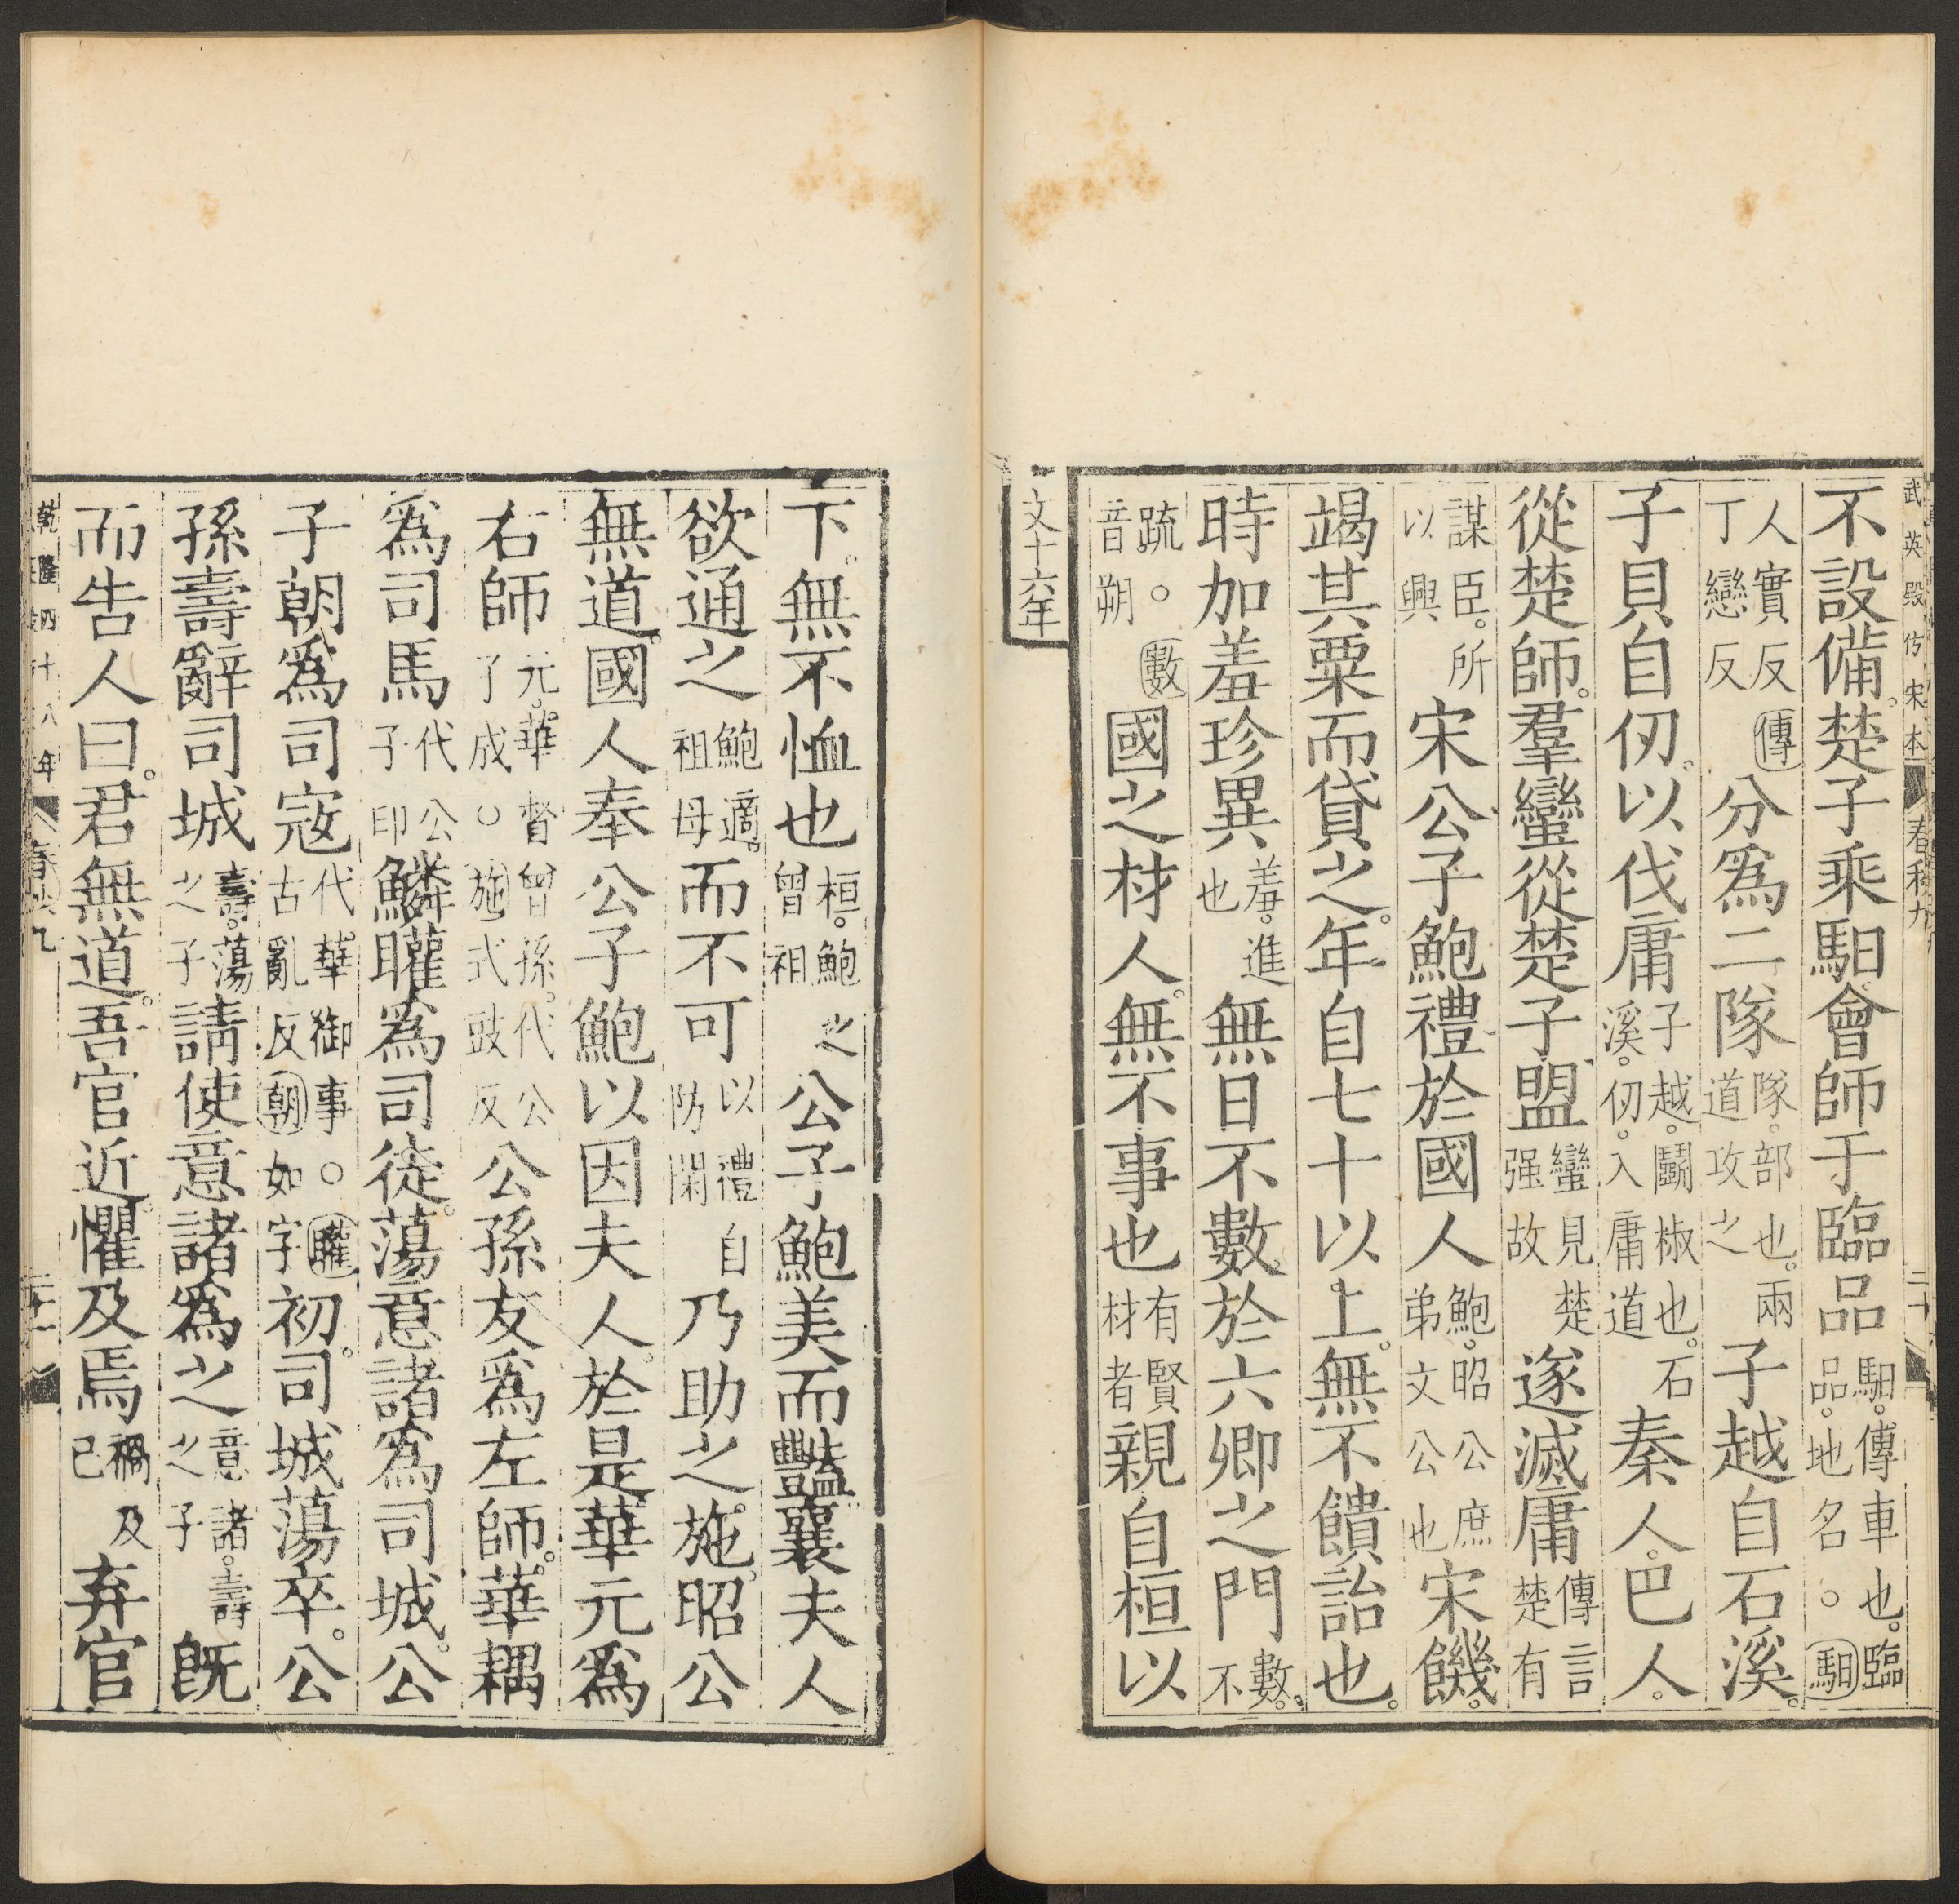 武英殿仿宋本 春秋九 二十
不設備。楚子乘馹會師于臨品馹。傳車也。臨品。地名。○馹
人實反傳丁戀反分爲二隊隊。部也。兩道攻之子越自石溪。
子貝自仞。以伐庸子越。鬬椒也。石溪。仞。入庸道秦人。巴人。
從楚師。羣蠻從楚子盟蠻見楚强故遂滅庸傳言楚有
謀臣。所以興宋公子鮑禮於國人鮑。昭公庶弟文公也宋饑。
竭其粟而貸之。年自七十以上。無不饋詒也。
時加羞珍異羞。進也無日不數。於六卿之門數。不
疏。○數音朔國之材人。無不事也有賢材者親自桓以
文十六年
下。無不恤也桓。鮑之曾祖公子鮑美而豔襄夫人
欲通之鮑適。祖母而不可以禮自防閑乃助之。施。昭公
無道。國人奉公子鮑以因夫人。於是華元爲
右師元。華督曾孫。代公子成○施式豉反公孫友爲左師。華耦
爲司馬代公子卬鱗矔爲司徒。蕩意諸爲司城。公
子朝爲司寇代華御事○矔古亂反朝如字初。司城蕩卒。公
孫壽辭司城壽。蕩之子請使意諸爲之意諸。壽之子旣
而告人曰。君無道。吾官近。懼及焉禍及己弃官
乾隆四十八年 春秋九 二十一